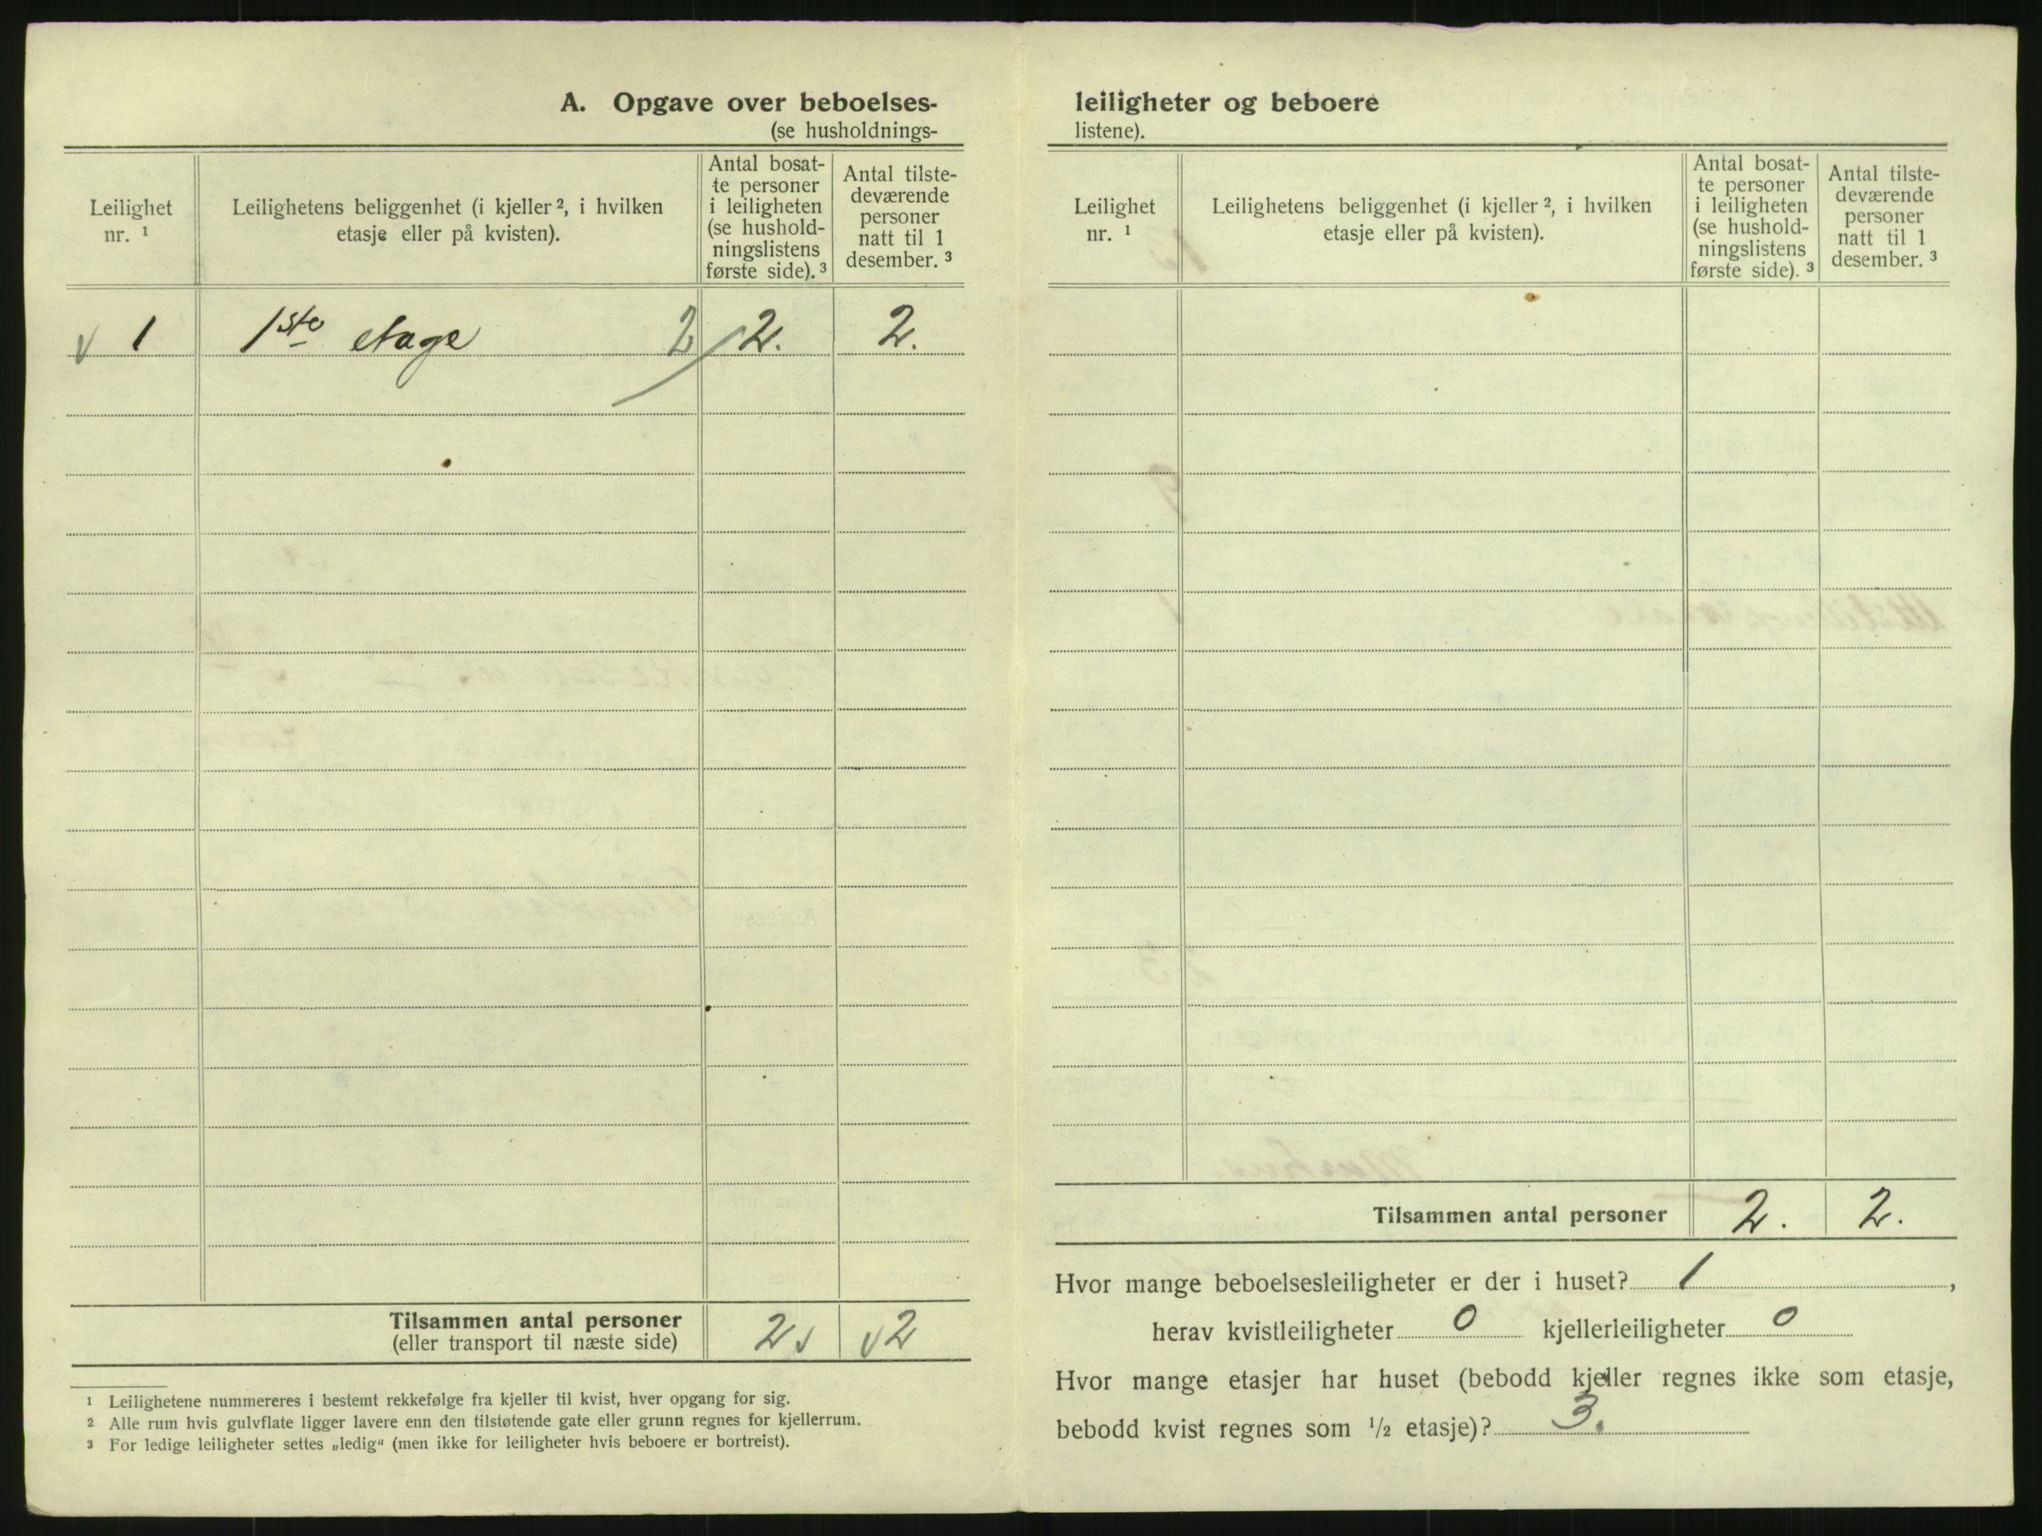 A. Opgave over beboelses-
(se husholdnings-
Leilighet nr. ¹
Leilighetens beliggenhet (i kjeller ², i hvilken etasje eller på kvisten).
Antal bosat-
te personer
i leiligheten
(se hushold-
ningslistens
første side). ³
Antal tilste-
deværende
personer
natt til 1
desember. ³
v 1 1ste etage 2 2. 2.
Tilsammen antal personer 2 v v 2
(eller transport til næste side)
¹ Leilighetene nummereres i bestemt rekkefølge fra kjeller til kvist, hver opgang for sig.
² Alle rum hvis gulvflate ligger lavere enn den tilstøtende gate eller grunn regnes for kjellerrum.
³ For ledige leiligheter settes „ledig“ (men ikke for leiligheter hvis beboere er bortreist).
leiligheter og beboere
listene).
Leilighet nr. ¹
Leilighetens beliggenhet (i kjeller ², i hvilken etasje eller på kvisten).
Antal bosat-
te personer
i leiligheten
(se hushold-
ningslistens
første side). ³
Antal tilste-
deværende
personer
natt til 1
desember. ³
Tilsammen antal personer 2. 2.
Hvor mange beboelsesleiligheter er der i huset? 1 ,
herav kvistleiligheter 0 kjellerleiligheter 0
Hvor mange etasjer har huset (bebodd kjeller regnes ikke som etasje,
bebodd kvist regnes som ½ etasje)? 3.